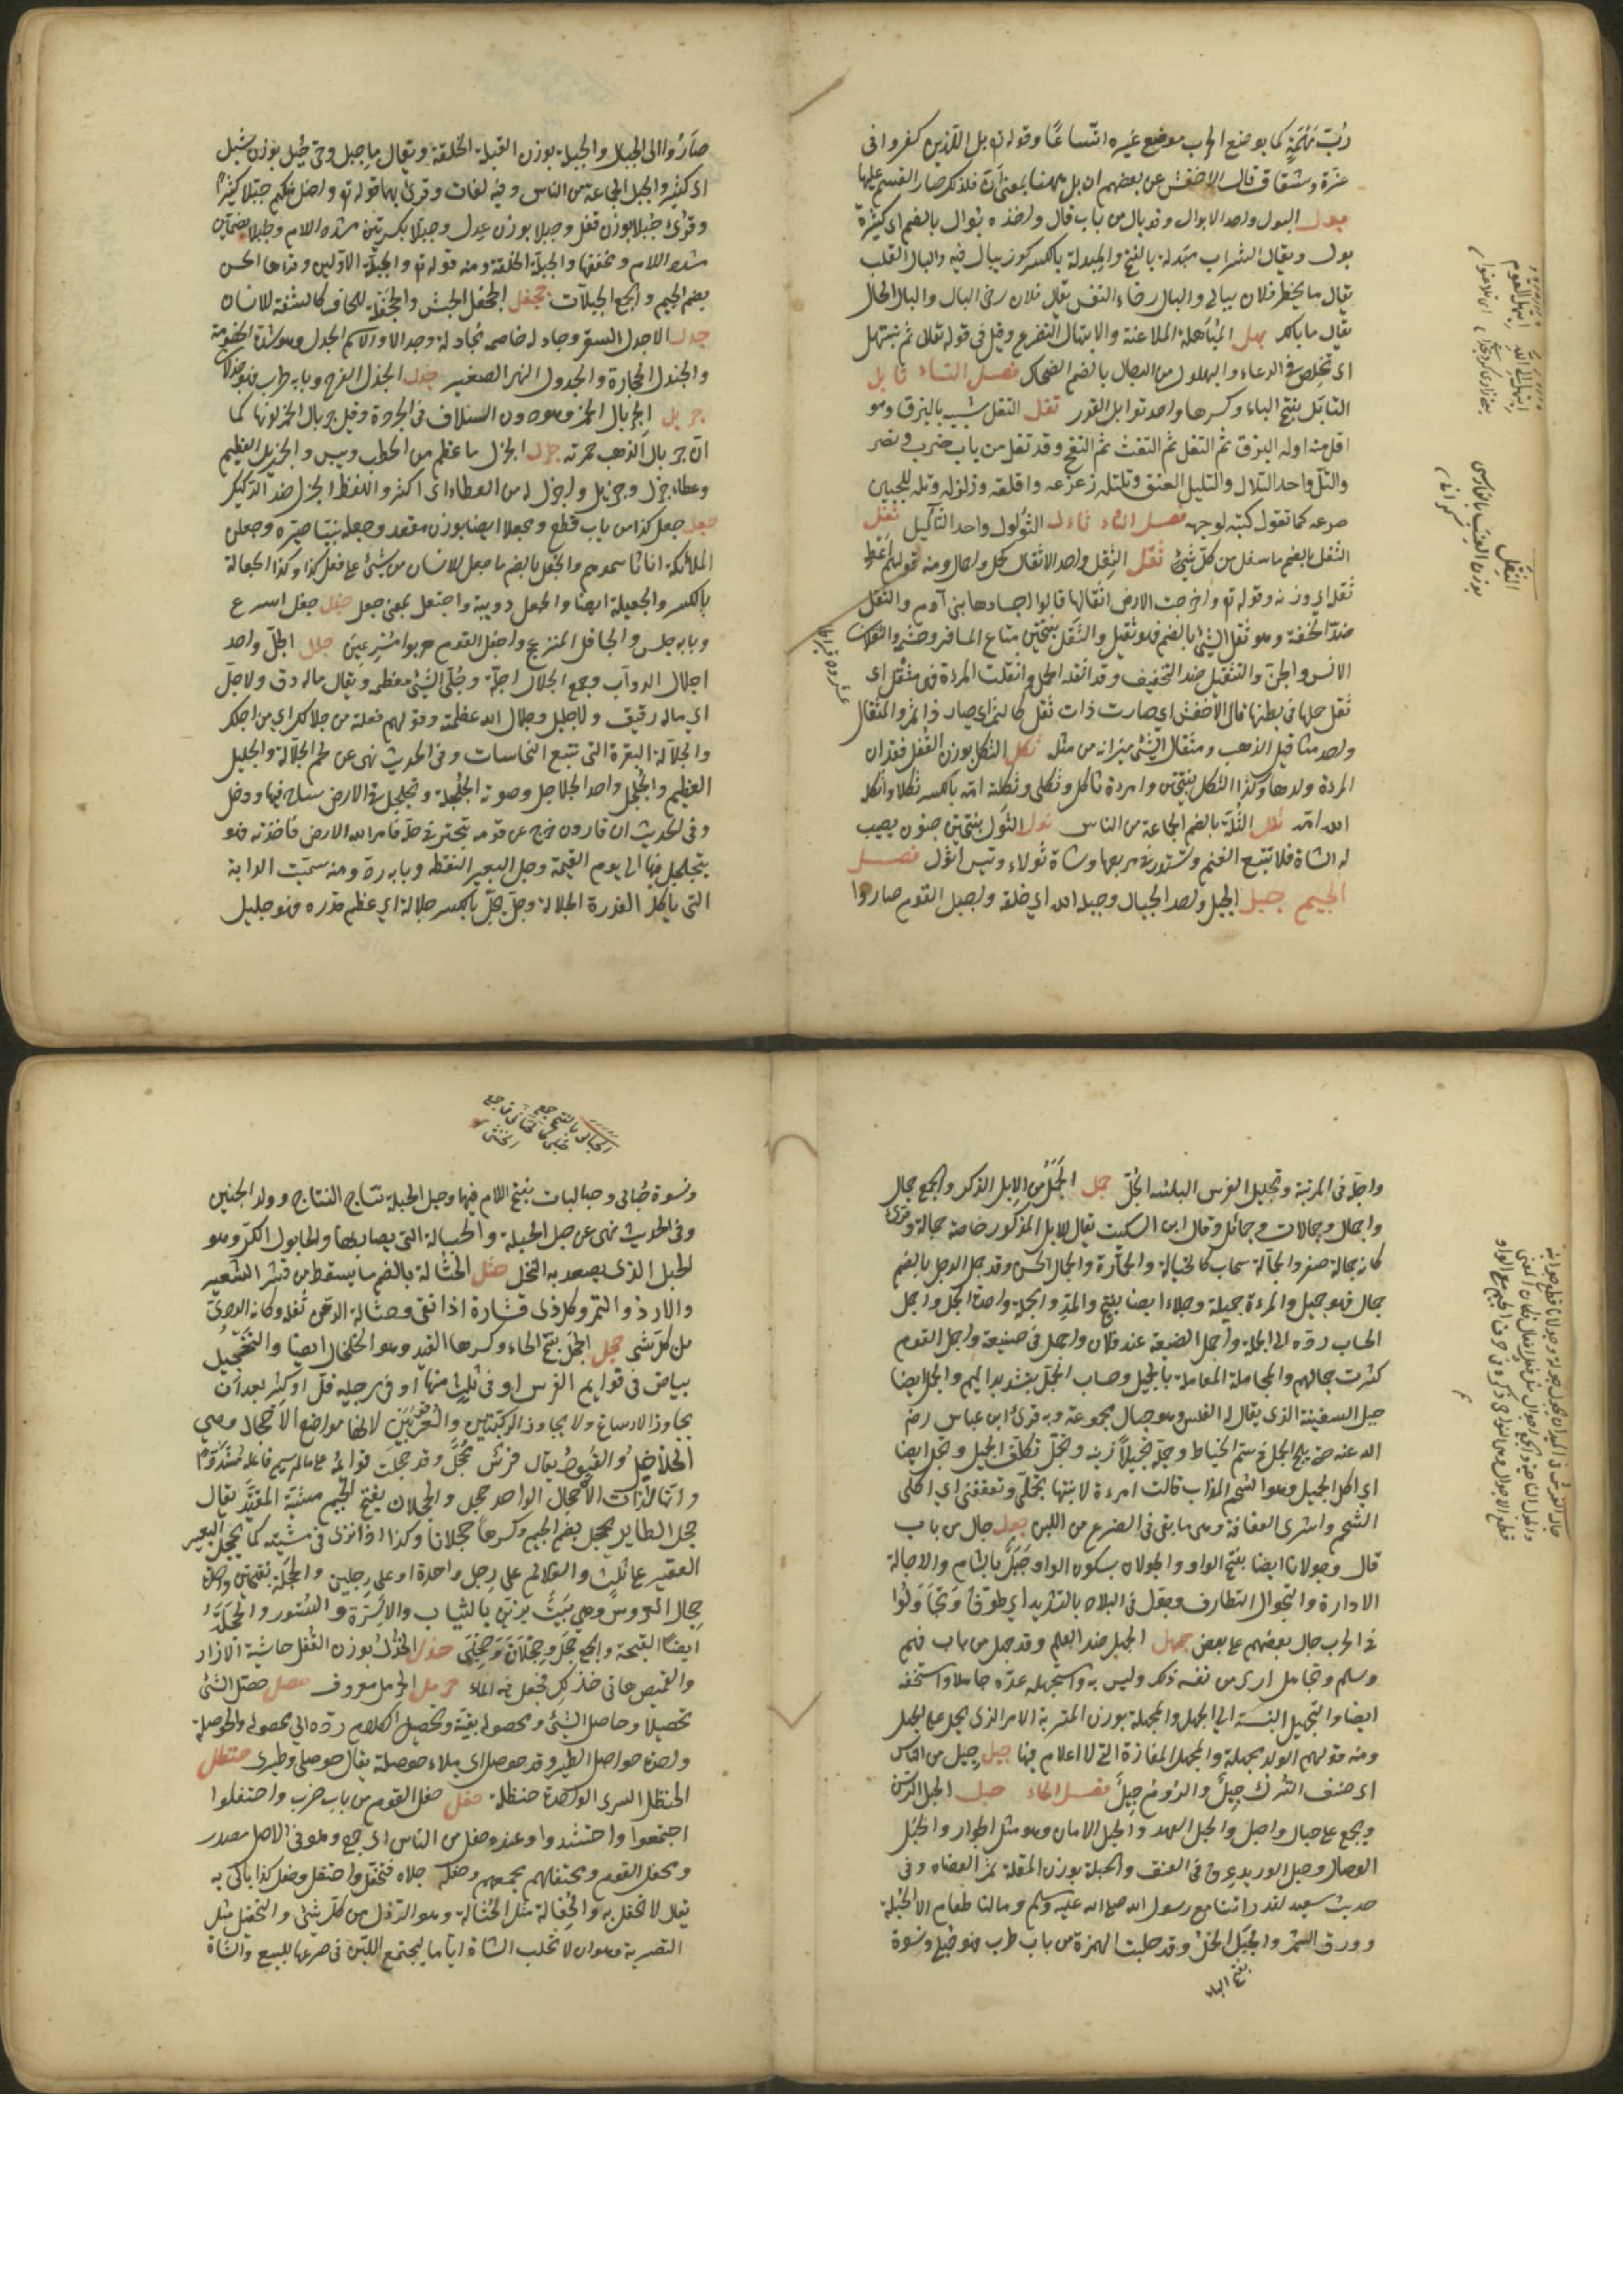 رُبّ مَهْمَهٍ كما يوضع الحرب موضع غيره اتساعًا وقوله تع بل الذين كفروا في
عزة وشقاق قال الاخفش عن بعضهم ان بل ههنا بمعنى ان فلذلك صار القسم عليها
بول البول واحد الابوال وقد بال من باب قال واخذه بُوال بالضم اى كثرة
بول ويقال الشراب مَبولة بالفتح والمِبولة بالكسر كوز يبال فيه والبال القلب
يقال ما يخطر فلان ببالي والبال رخاء النفس يقال فلان رخى البال والبال الحال
يقال ما بالك بهل المُباهلة الملاعنة والابتهال التضرع وقيل في قوله تعالى ثم نبتهل
اى نخلص في الدعاء والبهلول من الرجال بالضم الضحاك فصل التاء تابل
التابَل بفتح الباء وكسرها واحد توابل القدر تفل التفل شبيه بالبزق وهو
اقل منه اوله البزق ثم التفل ثم النفث ثم النفخ وقد تفل من باب ضرب ونصر
والتلّ واحد التلال والتليل العنق وتلتله زعزعه واقلقه وزلزله وتله للجبين
صرعه كما تقول كبّه لوجهه فصل الثاء ثاءل الثُؤلول واحد الثآليل ثفل
الثفل بالضم ما سفل من كل شيئ ثقل الثِقل واحد الاثقال كحمل واحمال ومنه قولهم اعطه
ثقله اى وزنه وقوله تع واخرجت الارض اثقالها قالوا اجساد بنى آدم والثقل
ضدّ الخفة وقد ثقل الشيئ بالضم فهو ثقيل والثَقَل بفتحتين متاع المسافر وحشمه والثقلان
الانس والجن والتثقيل ضد التخفيف وقد اثقله الحمل واثقلت المرءة فهى مثقل اى
ثقل حملها في بطنها قال الاخفش اى صارت ذات ثقل كما اتمر اى صار ذا تمر والمثقال
واحد مثاقيل الذهب ومثقال الشيئ ميزانه من مثله ثكل الثكل بوزن القفل فقدان
المرءة ولدها وكذا الثكل بفتحتين وامرءة ثاكل وثكلى وثكلته امه بالكسر ثكلا واثكله
الله امه ثلل الثُلّة بالضم الجماعة من الناس ثول الثَوَل بفتحتين جنون يصيب
الشاة فلا تتبع الغنم وتستدير في مرتعها وشاة ثولاء وتيس اثول فصل
الجيم جبل الجبل واحد الجبال وجبله الله اى خلقه واجبل القوم صاروا
ابتهل القوم
ابتهل الى الله
الثَقَل
بوزن العنب بالفارسى
صَارُوا الى الجبل والجبلة بوزن القبلة الخلقة ويقال مال جبل وحيّ جبل بوزن شبل
اى كثير والجبل الجماعة من الناس وفيه لغات وقرئ بها قوله تع ولقد اضل منكم جبلا كثيرا
وقرئ جُبْلا بوزن قفل وجِبلا بوزن عِدل وجبلا بكسرتين مشدد اللام وجُبلا بضمتين
مشدد اللام ومخففها والجبلّة الخلقة ومنه قوله تع والجبلّة الاولين وقراها الحسن
بضم الجيم والجمع الجبلات جحفل الجحفل الجيش والجَحفَلة للحافر كالشفة للانسان
جدل الاجدل الصقر وجادله خاصمه مجادلة وجدالا والاسم الجدل وهو شدة الخصومة
والجندل الحجارة والجدول النهر الصغير جذل الجذل الفرح وبابه طرب فهو جذلان
جربل الجريال الخمر وهو دون السلاف في الجودة وقيل جريال الخمر لونها كما
ان جريال الذهب حمرته جزل الجزل ما عظم من الحطب ويبس والجزيل العظيم
وعطاء جزل وجزيل واجزل له من العطاء اى اكثر واللفظ الجزل ضد الركيك
جعل جعل كذا من باب قطع ومجعلا ايضا بوزن مقعد وجعله نبيا صيّره وجعلوا
الملائكة اناثا سموهم والجُعل بالضم ما جعل للانسان من شيئ على فعل كذا وكذا الجعالة
بالكسر والجعيلة ايضا والجعل دويبة واجتعل بمعنى جعل جفل جفل اسرع
وبابه جلس والجافل المنزعج واجفل القوم هربوا مُسْرِعينَ جلل الجلّ واحد
اجلال الدوآب وجمع الجلال اجلّة وجُلّ الشيئ معظمه ويقال ماله دق ولا جلّ
اى ماله دقيق ولا جليل وجلال الله عظمته وقولهم فعلته من جلالك اى من اجلك
والجلّالة البقرة التى تتبع النجاسات وفى الحديث نهى عن لحم الجلّالة والجليل
العظيم والجُلجُل واحد الجلاجل وصوته الجلجلة وتجلجل في الارض ساخ فيها ودخل
وفى الحديث ان قارون خرج على قومه يتبختر في حلّة فامر الله الارض فاخذته فهو
يتجلجل فيها الى يوم القيمة وجل البعير التقطه وبابه ردّ ومنه سميت الدابة
التى تاكل العذرة الجلالة وجل يجل بالكسر جلالة اى عظم قدره فهو جليل
واجلّه في المرتبة وتجليل الفرس الباسه الجُلّ جمل الجَمَل من الابل الذكر والجمع جمال
واجمال وجمالات وجمائل وقال ابن السكيت يقال للابل المذكور خاصة جمالة وقرئ
كانه جمالة صفر والجمّالة اصحاب كالخيّالة والحمّارة والجمال الحسن وقد جمل الرجل بالضم
جمالا فهو جميل والمرءة جميلة وجملاء ايضا بفتح والمد والجملة واحدة الجمل واجمل
الحساب ردّه الى الجملة واجمل الصنيعة عند فلان واجمل في صنيعه واجمل القوم
كثرت جمالهم والمجاملة المعاملة بالجميل وحساب الجمّل بتشديد الميم والجمل ايضا
حبل السفينة الذى يقال له القلس وهو حبال مجموعة وبه قرئ ابن عباس رض
الله عنه حتى يلج الجمل في سم الخياط وجمّله تجميلا زينه وتجمّل تكلّف الجميل وتجمل ايضا
اى اكل الجميل وهو الشحم المذاب قالت امرءة لابنتها تجمّلى وتعففى اى كلى
الشحم واشربى العفافة وهى ما بقى فى الضرع من اللبن جول جال من باب
قال وجولانا ايضا بفتح الواو والجولان بسكون الواو جَبَلٌ بالشام والاجالة
الادارة والتجوال التطواف وجوّل في البلاد بالتشديد اى طوّف وتَجاوَلوا
في الحرب جال بعضهم على بعض جهل الجهل ضد العلم وقد جهل من باب فهم
وسلم وتجاهل ارى من نفسه ذلك وليس به واستجهله عدّه جاهلا واستخفه
ايضا والتجهيل النسبة الى الجهل والمجهلة بوزن المتربة الامر الذى يحمل على الجهل
ومنه قولهم الولد مجهلة والمجهل المفازة التى لا اعلام فيها جيل جيل من الناس
اى صنف الترك جِيلٌ والرّوم جِيلٌ فصل الحاء حبل الحبل الرسن
ويجمع على حبال واحبل والحبل العهد والحبل الامان وهو مثل الجوار والحَبل
الوصال وحبل الوريد عرق في العنق والحبلة بوزن المقلة ثمر العضاه وفى
حديث سعيد لقد رايتنا مع رسول الله صلى الله عليه وسلم وما لنا طعام الا الحُبْلة
وورق السمر والحَبَل الحمل وقد حبلت المرءة من باب طرب فهو حُبلى ونسوة
بفتح الباء
الحبالى بالفتح جمع
ونسوة حُبالى وحباليات بفتح اللام فيها وحبل الحبلة نتاج النتاج وولد الجنين
وفى الحديث نهى عن حبل الحبلة والحبالة التى يصاد بها والحابول الكرّ وهو
الحبل الذى يصعد به النخل حثل الحُثالة بالضم ما يسقط من قشر الشعير
والارز والتمر وكل ذى قشارة اذا نقى وحثالة الدهن ثفله وكانه الردئ
من كل شيئ حجل الحِجل بفتح الحاء وكسرها القيد وهو الخلخال ايضا والتحجيل
بياض في قوايم الفرس او فى ثلث منها او في رجليه قلّ او كثر بعد ان
يجاوز الارساغ ولا يجاوز الركبتين والعرقوبين لانها مواضع الاحجال وهى
الخلاخيل والقيود يقال فرس محجّل وقد حجلت قوائمه على ما لم يسم فاعله مشددا
وانها لذات الاحجال الواحد حجل والحجلان بفتح الجيم مشية المقيّد يقال
حجل الطاير يحجل بضم الجيم وكسرها حجلانا وكذا اذا نزى في مشيته كما يحجل البعير
العقير على ثلث والغلام على رجل واحدة او على رجلين والحَجَلة بفتحتين واحدة
حِجال العروس وهى بيت يزين بالثياب والاسرّة والستور والحَجلة
ايضا القبجة والجمع حَجَل وحِجْلان وحِجْلى حذل الحُذل بوزن القُفل حاشية الازار
والقميص هاتى حذلك فجعل فيه المال حرمل الحرمل معروف حصل حصّل الشيئ
تحصيلا وحاصل الشيئ ومحصوله بقيته وتحصيل الكلام ردّه الى محصوله والحوصلة
واحدة حواصل الطير وقد حوصل اى ملاء حوصلته يقال حوصلى وطيرى حنظل
الحنظل الشرى الواحدة حنظلة حفل حفل القوم من باب ضرب واحتفلوا
اجتمعوا واحتشدوا وعنده حفل من الناس اى جمع وهو في الاصل مصدر
ومحفل القوم ومحتفلهم مجمعهم وحفله جلاه فتحفّل واحتفل وحفل كذا بالى به
يقال لا تحفل به والحُفالة مثل الحُثالة وهو الرذل من كل شيئ والتحفيل مثل
التصرية وهو ان لا تحلب الشاة اياما ليجتمع اللبن في ضرعها للبيع والشاة